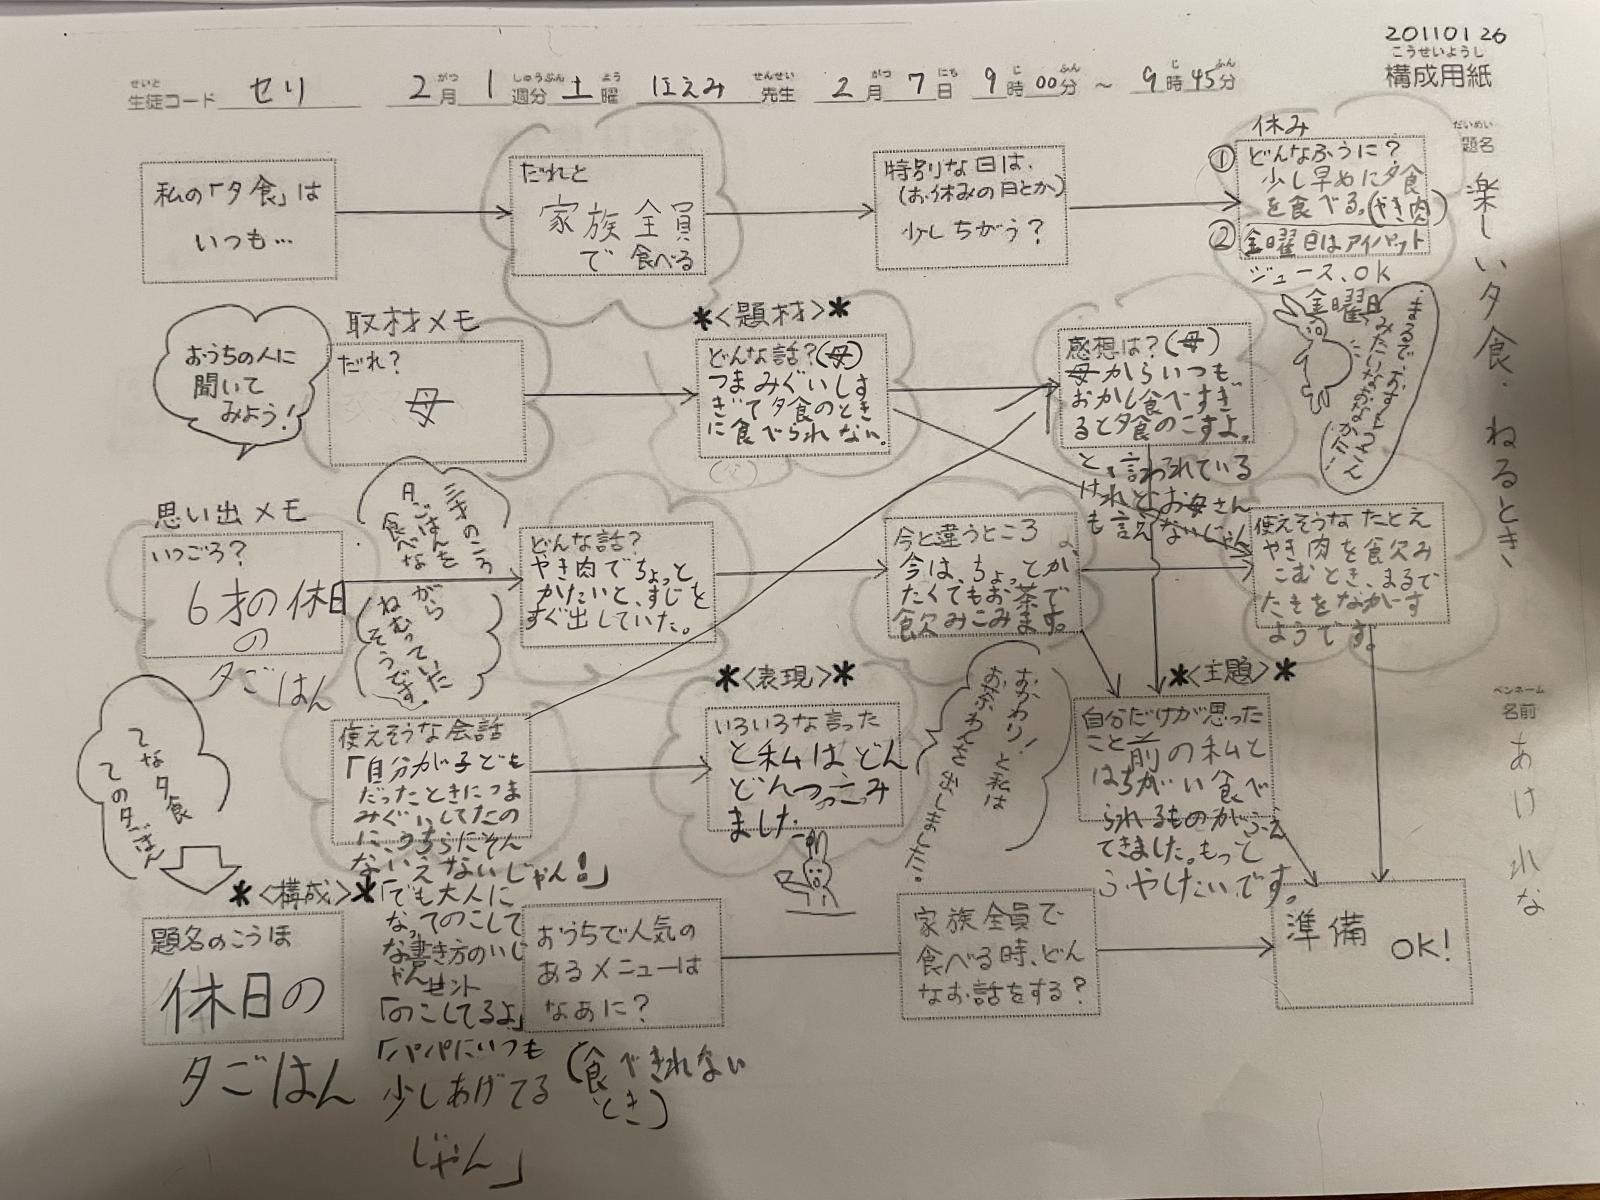 20110126
こうせいようし
構成用紙
せいと がつ しゅうぶん よう せんせい がつ にち じ ふん じ ふん
生徒コード セリ 2月 1週分 土曜 ほえみ 先生 2月7日 9時00分 ～ 9時45分
だいめい
題名
楽しい夕食・ねるとき、
ペンネーム
名前
あけれな
私の「夕食」は
いつも…
だれと
家族全員
で食べる
特別な日は、
(お休みの日とか)
少しちがう?
休み
①どんなふうに?
少し早めに夕食
を食べる。(やき肉)
②金曜日はアイパット
ジュース、ok
金曜日
おうちの人に
聞いて
みよう!
取材メモ
だれ?
母
*<題材>*
どんな話?(母)
つまみぐいしす
ぎて夕食のとき
に食べられない。
感想は?(母)
母からいつも
おかし食べすぎ
ると夕食のこすよ。
と、言われている
けれどお母さん
も言えないじゃん
まるで、おすもうさん
みたいなおなかだ!
思い出メモ
いつごろ?
6才の休日
の
夕ごはん
三才のころ
夕ごはんを
食べな
がら
ねむっていた
そうです。
どんな話?
やき肉でちょっと
かたいと、すじを
すぐ出していた。
今と違うところ
今は、ちょっとか
たくてもお茶で
飲みこみます。
使えそうなたとえ
やき肉を食飲み
こむとき、まるで
たきをながーす
ようです。
てな夕食
ての夕ごはん
使えそうな会話
「自分が子ども
だったときにつま
みぐいしてたの
に、うちらにそん
ないえないじゃん!」
「でも大人に
なってのこして
な書き方のいじ
ゃん
セント
「のこしてるよ」
「パパにいつも
少しあげてる
じゃん」
(食べきれない
とき)
*<表現>*
いろいろな言った
と私はどん
どんつっこみ
ました
おかわり!と私は
お茶わんを出しました。
*<主題>*
自分だけが思った
こと前の私と
はちがい食べ
られるものがふえ
てきました。もって
ふやしたいです。
*<構成>*
題名のこうほ
休日の
夕ごはん
おうちで人気の
あるメニューは
なぁに?
家族全員で
食べる時、どん
なお話をする?
準備 OK!